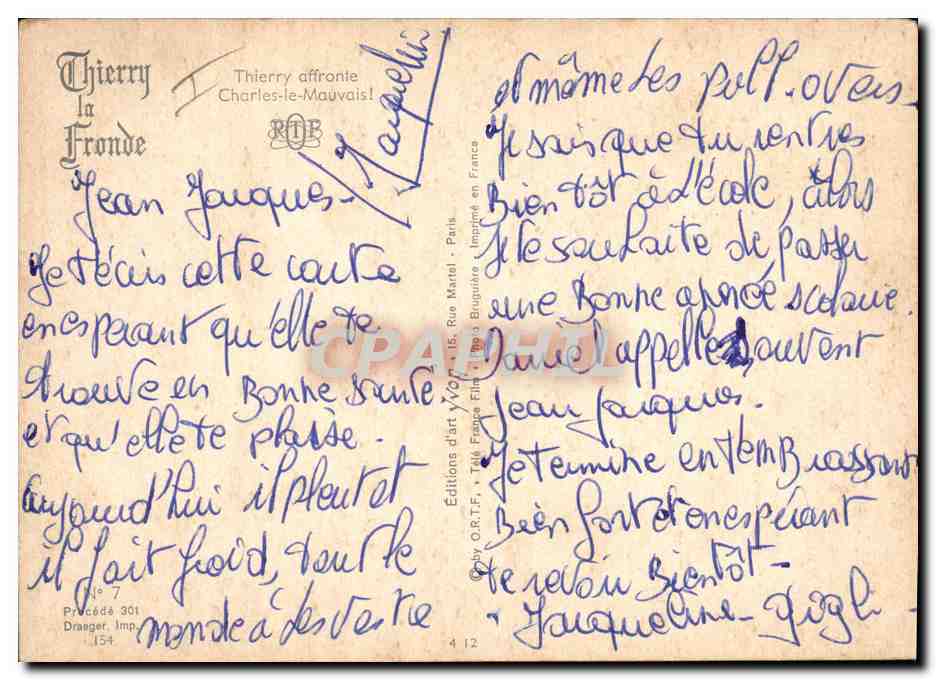 Thierry
la
Fronde
Thierry affronte
Charles-le-Mauvais!
RTF
Jean Jacques-
Je t'écris cette carte
en esperant qu'elle te
trouve en Bonne Santé
et qu'elle te plaise.
Aujourd'hui il pleut et
il fait froid, tout le
monde à des veste
N° 7
Procédé 301
Draeger, Imp.
154
Éditions d'art yvon, 15, Rue Martel - Paris
© by O.R.T.F. - Télé France Film - Photo Bruguière - Imprimé en France
4 12
et même les pull-overs-
Je sais que tu rentres
Bientôt à l'école, alors
Je te souhaite de passer
une Bonne année scolaire.
Daniel appelle souvent
Jean Jacques.
Je termine en t'emBrassant
Bien fort et en espérant
te revoir Bientôt-
Jacqueline-
CPAPHIL